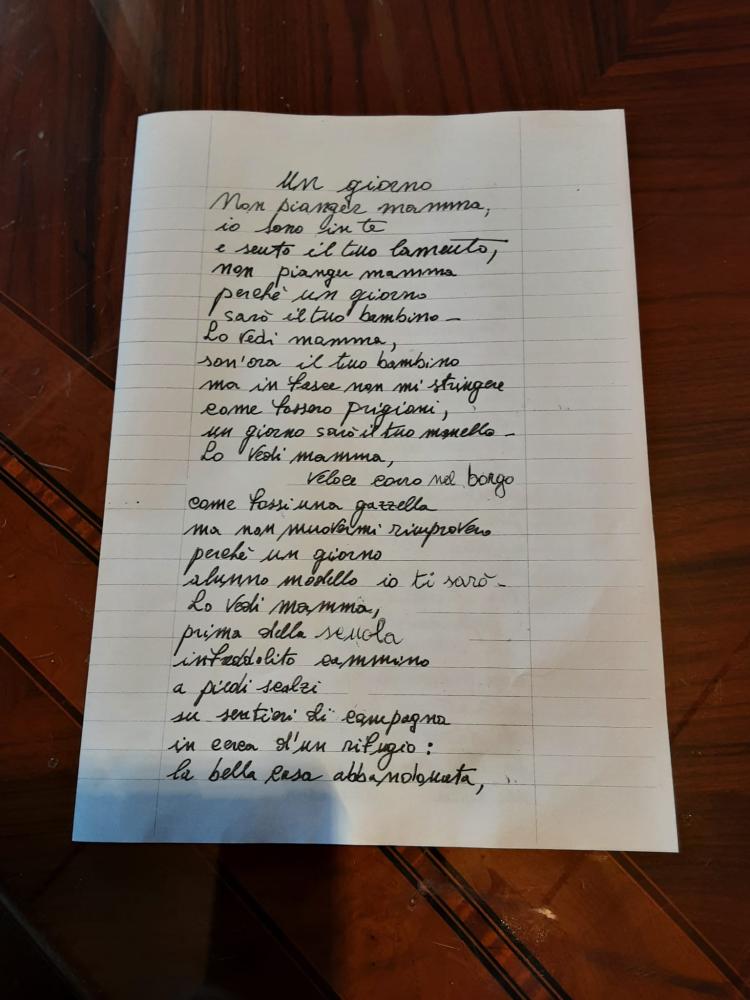 Un giorno
Non pianger mamma,
io sono in te
e sento il tuo lamento,
non pianger mamma
perchè un giorno
sarò il tuo bambino -
Lo vedi mamma,
son'ora il tuo bambino
ma in fasce non mi stringere
come fossero prigioni,
un giorno sarò il tuo monello -
Lo vedi mamma,
veloce corro nel borgo
come fossi una gazzella
ma non muovermi rimprovero
perchè un giorno
alunno modello io ti sarò -
Lo vedi mamma,
prima della scuola
infreddolito cammino
a piedi scalzi
su sentieri di campagna
in cerca d'un rifugio:
la bella casa abbandonata,